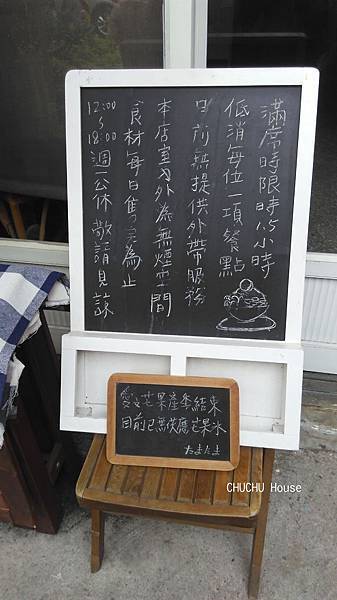 滿席時限時1.5小時
低消每位一項餐點
目前無提供外帶服務
本店室內外為無煙空間
食材每日售完為止
12:00
~
18:00 週一公休 敬請見諒
愛文芒果產季結束
目前已無供應芒果冰
たまたま
CHUCHU House